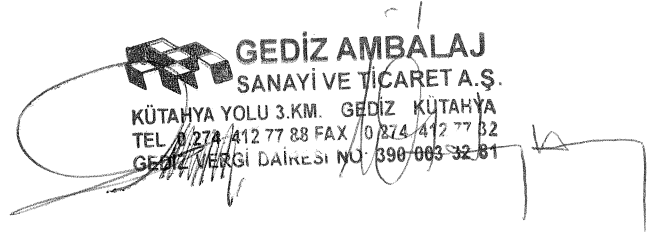 GEDİZ AMBALAJ
SANAYİ VE TİCARET A.Ş.
KÜTAHYA YOLU 3.KM. GEDİZ KÜTAHYA
TEL 0 274 412 77 88 FAX 0 274 412 77 32
GEDİZ VERGİ DAİRESİ NO: 390 003 32 81